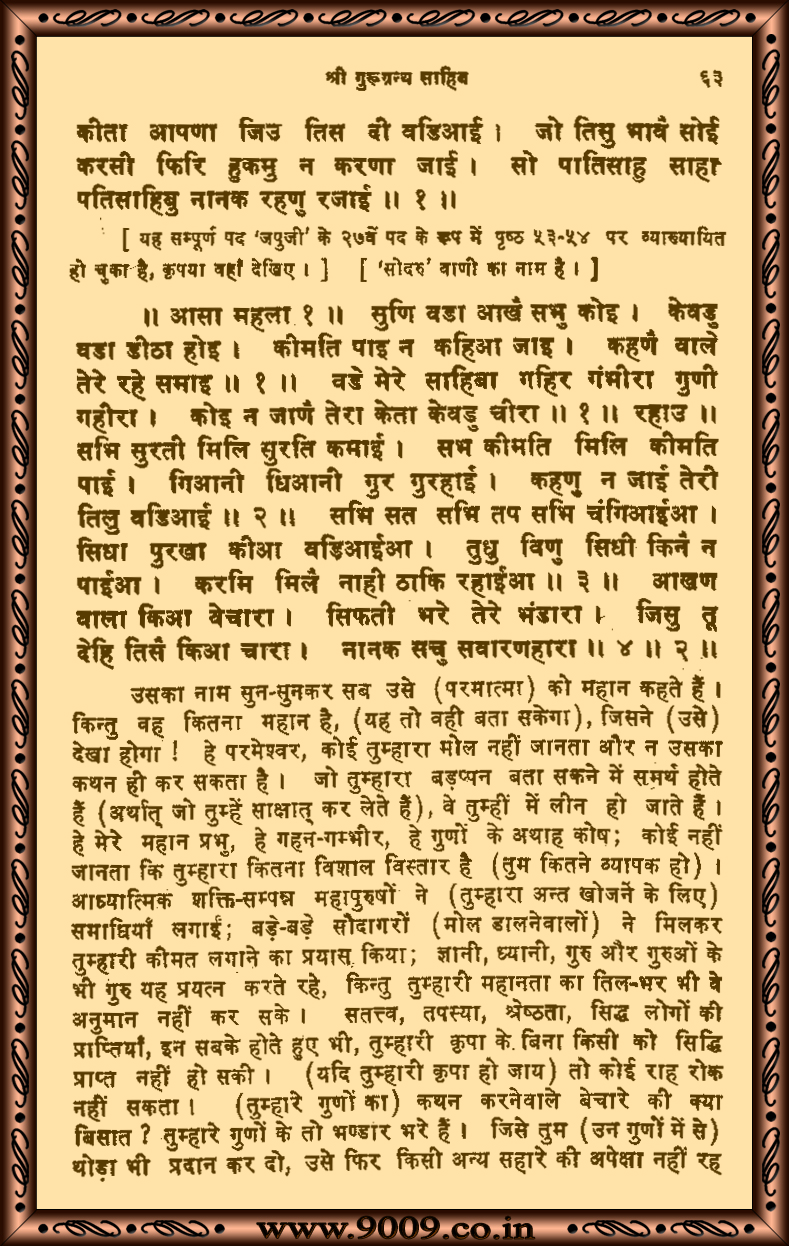 श्री गुरूग्रन्थ साहिब ६३
कीता आपणा जिउ तिस दी वडिआई। जो तिसु भावै सोई
करसी फिरि हुकमु न करणा जाई। सो पातिसाहु साहा
पतिसाहिबु नानक रहणु रजाई॥ १॥
[ यह सम्पूर्ण पद ‘जपुजी’ के २७वें पद के रूप में पृष्ठ ५३-५४ पर व्याख्यायित
हो चुका है, कृपया वहाँ देखिए। ] [ ‘सोदरु’ वाणी का नाम है। ]
॥ आसा महला १॥ सुणि वडा आखै सभु कोइ। केवडु
वडा डीठा होइ। कीमति पाइ न कहिआ जाइ। कहणै वाले
तेरे रहे समाइ॥ १॥ वडे मेरे साहिबा गहिर गंभीरा गुणी
गहीरा। कोइ न जाणै तेरा केता केवडु चीरा॥ १॥ रहाउ॥
सभि सुरती मिलि सुरति कमाई। सभ कीमति मिलि कीमति
पाई। गिआनी धिआनी गुर गुरहाई। कहणु न जाई तेरी
तिलु वडिआई॥ २॥ सभि सत सभि तप सभि चंगिआईआ।
सिधा पुरखा कीआ वड़िआईआ। तुधु विणु सिधी किनै न
पाईआ। करमि मिलै नाही ठाकि रहाईआ॥ ३॥ आखण
वाला किआ वेचारा। सिफती भरे तेरे भंडारा। जिसु तू
देहि तिसै किआ चारा। नानक सचु सवारणहारा॥ ४॥ २॥
उसका नाम सुन-सुनकर सब उसे (परमात्मा) को महान कहते हैं।
किन्तु वह कितना महान है, (यह तो वही बता सकेगा), जिसने (उसे)
देखा होगा! हे परमेश्वर, कोई तुम्हारा मोल नहीं जानता और न उसका
कथन ही कर सकता है। जो तुम्हारा बड़प्पन बता सकने में समर्थ होते
हैं (अर्थात् जो तुम्हें साक्षात् कर लेते हैं), वे तुम्हीं में लीन हो जाते हैं।
हे मेरे महान प्रभु, हे गहन-गम्भीर, हे गुणों के अथाह कोष; कोई नहीं
जानता कि तुम्हारा कितना विशाल विस्तार है (तुम कितने व्यापक हो)।
आध्यात्मिक शक्ति-सम्पन्न महापुरुषों ने (तुम्हारा अन्त खोजने के लिए)
समाधियाँ लगाईं; बड़े-बड़े सौदागरों (मोल डालनेवालों) ने मिलकर
तुम्हारी कीमत लगाने का प्रयास किया; ज्ञानी, ध्यानी, गुरु और गुरुओं के
भी गुरु यह प्रयत्न करते रहे, किन्तु तुम्हारी महानता का तिल-भर भी वे
अनुमान नहीं कर सके। सतत्त्व, तपस्या, श्रेष्ठता, सिद्ध लोगों की
प्राप्तियाँ, इन सबके होते हुए भी, तुम्हारी कृपा के बिना किसी को सिद्धि
प्राप्त नहीं हो सकी। (यदि तुम्हारी कृपा हो जाय) तो कोई राह रोक
नहीं सकता। (तुम्हारे गुणों का) कथन करनेवाले बेचारे की क्या
बिसात? तुम्हारे गुणों के तो भण्डार भरे हैं। जिसे तुम (उन गुणों में से)
थोड़ा भी प्रदान कर दो, उसे फिर किसी अन्य सहारे की अपेक्षा नहीं रह
www.9009.co.in